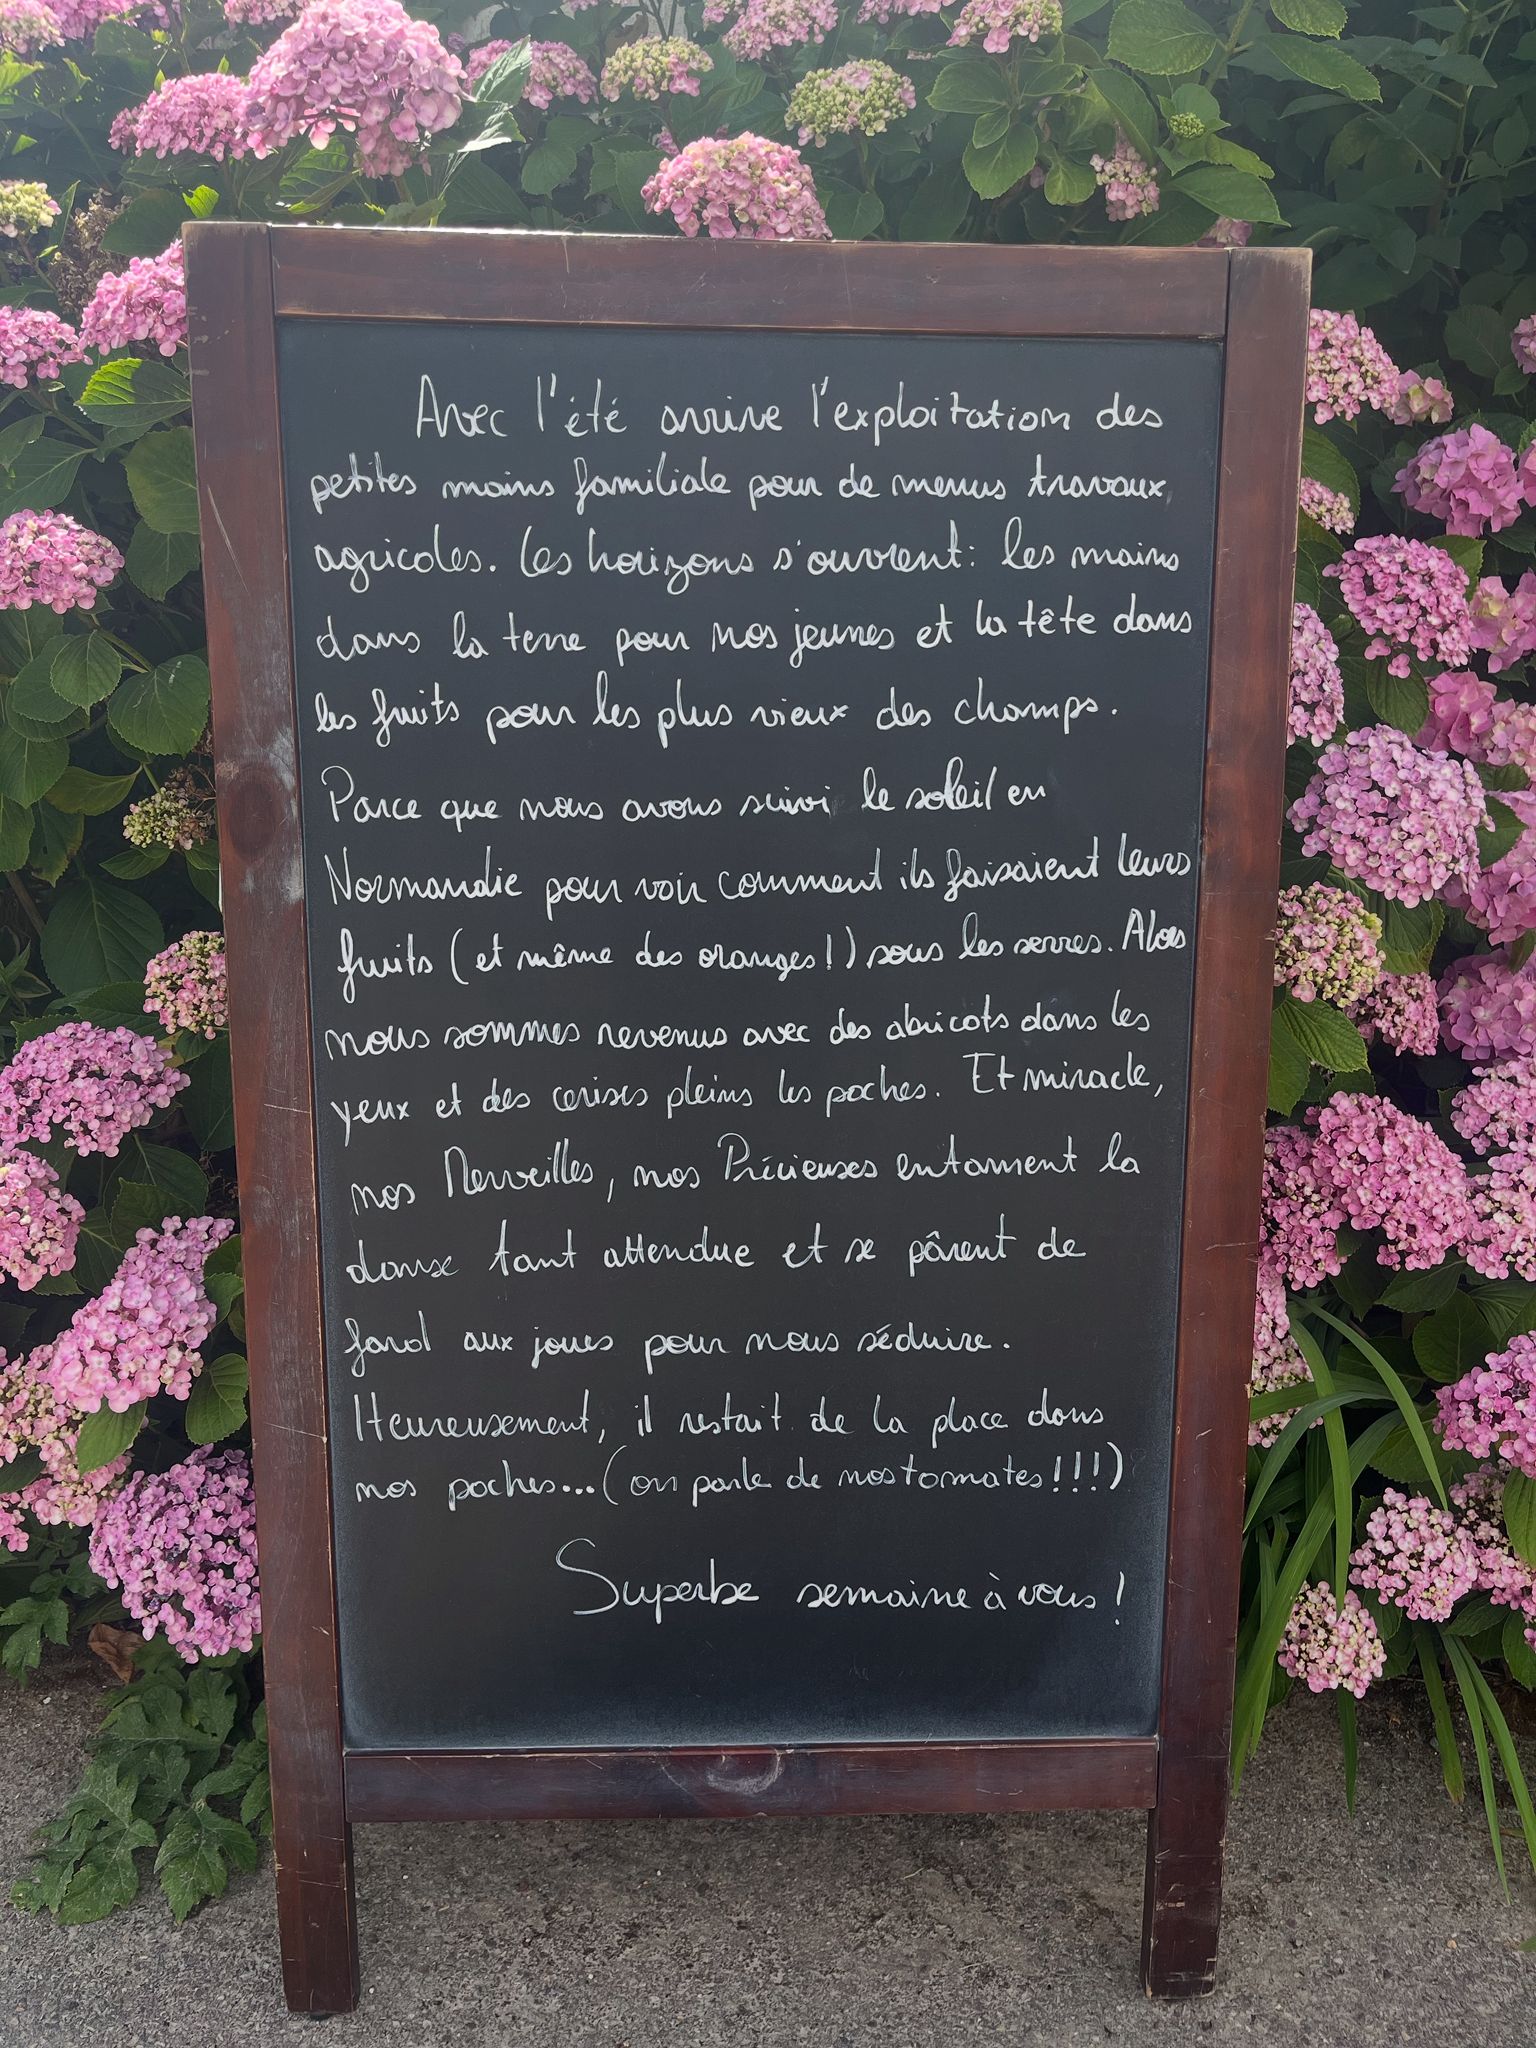 Avec l'été arrive l'exploitation des
petites mains familiale pour de menus travaux
agricoles. Les horizons s'ouvrent : les mains
dans la terre pour nos jeunes et la tête dans
les fruits pour les plus vieux des champs.
Parce que nous avons suivi le soleil en
Normandie pour voir comment ils faisaient leurs
fruits (et même des oranges !) sous les serres. Alors
nous sommes revenus avec des abricots dans les
yeux et des cerises pleins les poches. Et miracle,
nos Merveilles, nos Précieuses entament la
danse tant attendue et se pârent de
fard aux joues pour nous séduire.
Heureusement, il restait de la place dans
nos poches... (on parle de nos tomates !!!)
Superbe semaine à vous !